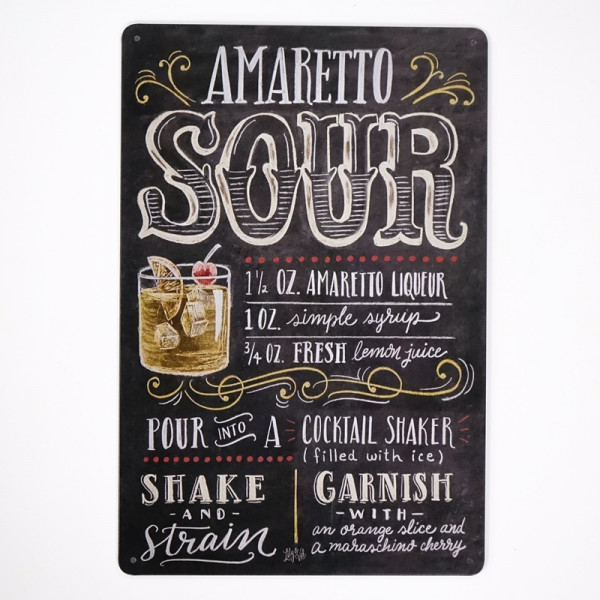 AMARETTO
SOUR
1 1/2 OZ. AMARETTO LIQUEUR
1 OZ. simple syrup
3/4 OZ. FRESH lemon juice
POUR INTO A COCKTAIL SHAKER
(filled with ice)
SHAKE
-AND-
strain
GARNISH
-WITH-
an orange slice and
a maraschino cherry